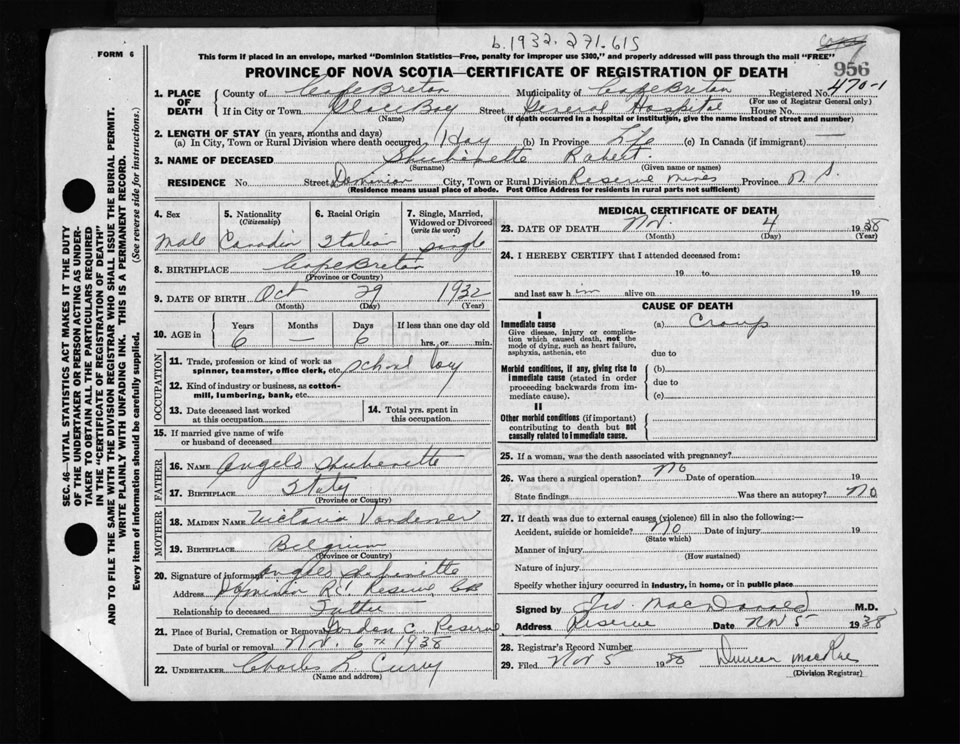 b. 1932. 271.615
FORM 6
This form if placed in an envelope, marked "Dominion Statistics—Free, penalty for improper use $300," and properly addressed will pass through the mail "FREE"
956
PROVINCE OF NOVA SCOTIA—CERTIFICATE OF REGISTRATION OF DEATH
470-1
1. PLACE OF DEATH
County of Cape Breton Municipality of Cape Breton Registered No.
(For use of Registrar General only)
If in City or Town Glace Bay Street General Hospital House No.
(Name) (If death occurred in a hospital or institution, give the name instead of street and number)
2. LENGTH OF STAY (in years, months and days)
(a) In City, Town or Rural Division where death occurred 1 day (b) In Province Life (c) In Canada (if immigrant) —
3. NAME OF DECEASED Robert.
(Surname) (Given name or names)
RESIDENCE No. Street Dominion City, Town or Rural Division Reserve Mines Province N. S.
(Residence means usual place of abode. Post Office Address for residents in rural parts not sufficient)
4. Sex
male
5. Nationality
(Citizenship)
Canadin
6. Racial Origin
Italian
7. Single, Married, Widowed or Divorced
(write the word)
single
8. BIRTHPLACE Cape Breton
(Province or Country)
9. DATE OF BIRTH Oct 29 1932
(Month) (Day) (Year)
10. AGE in
Years Months Days If less than one day old
6 — 6 hrs. or min.
OCCUPATION
11. Trade, profession or kind of work as
spinner, teamster, office clerk, etc. school boy
12. Kind of industry or business, as cotton-
mill, lumbering, bank, etc.
13. Date deceased last worked
at this occupation
14. Total yrs. spent in
this occupation
15. If married give name of wife
or husband of deceased
FATHER
16. NAME Angelo
17. BIRTHPLACE Italy
(Province or Country)
MOTHER
18. MAIDEN NAME Victoria
19. BIRTHPLACE Belgium
(Province or Country)
20. Signature of informant
Address Dominion Reserve CB
Relationship to deceased Father
21. Place of Burial, Cremation or Removal Reserve
Date of burial or removal Nov. 6th 1938
22. UNDERTAKER Charles L. Curry
(Name and address)
MEDICAL CERTIFICATE OF DEATH
23. DATE OF DEATH Nov. 4 1938
(Month) (Day) (Year)
24. I HEREBY CERTIFY that I attended deceased from:
19 to 19
and last saw h im alive on 19
CAUSE OF DEATH
I
Immediate cause
Give disease, injury or complica-
tion which caused death, not the
mode of dying, such as heart failure,
asphyxia, asthenia, etc
(a) Croup
due to
Morbid conditions, if any, giving rise to
immediate cause (stated in order
proceeding backwards from im-
mediate cause).
(b)
due to
(c)
II
Other morbid conditions (if important)
contributing to death but not
causally related to immediate cause.
25. If a woman, was the death associated with pregnancy?
26. Was there a surgical operation? No Date of operation 19
State findings Was there an autopsy? No
27. If death was due to external causes (violence) fill in also the following:—
Accident, suicide or homicide? No Date of injury 19
(State which)
Manner of injury
(How sustained)
Nature of injury
Specify whether injury occurred in industry, in home, or in public place
Signed by MacDonald M.D.
Address Reserve Date Nov 5 1938
28. Registrar's Record Number
29. Filed Nov 5 1938 Duncan MacRae
(Division Registrar)
SEC. 46—VITAL STATISTICS ACT MAKES IT THE DUTY
OF THE UNDERTAKER OR PERSON ACTING AS UNDER-
TAKER TO OBTAIN ALL THE PARTICULARS REQUIRED
IN THE "CERTIFICATE OF REGISTRATION OF DEATH"
AND TO FILE THE SAME WITH THE DIVISION REGISTRAR WHO SHALL ISSUE THE BURIAL PERMIT.
WRITE PLAINLY WITH UNFADING INK. THIS IS A PERMANENT RECORD.
Every item of information should be carefully supplied. (See reverse side for instructions.)